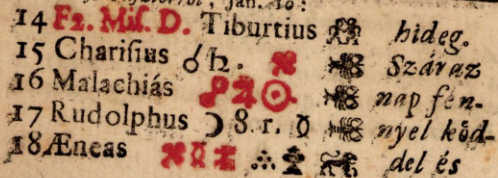 14 F2. Miſ. D. Tiburtius hideg.
15 Chariſius ☌ ♄. Száraz
16 Malachiás ☍ ♃ ☉. nap fén-
17 Rudolphus ☽ 8. r. nyel köd-
18. Æneas del és